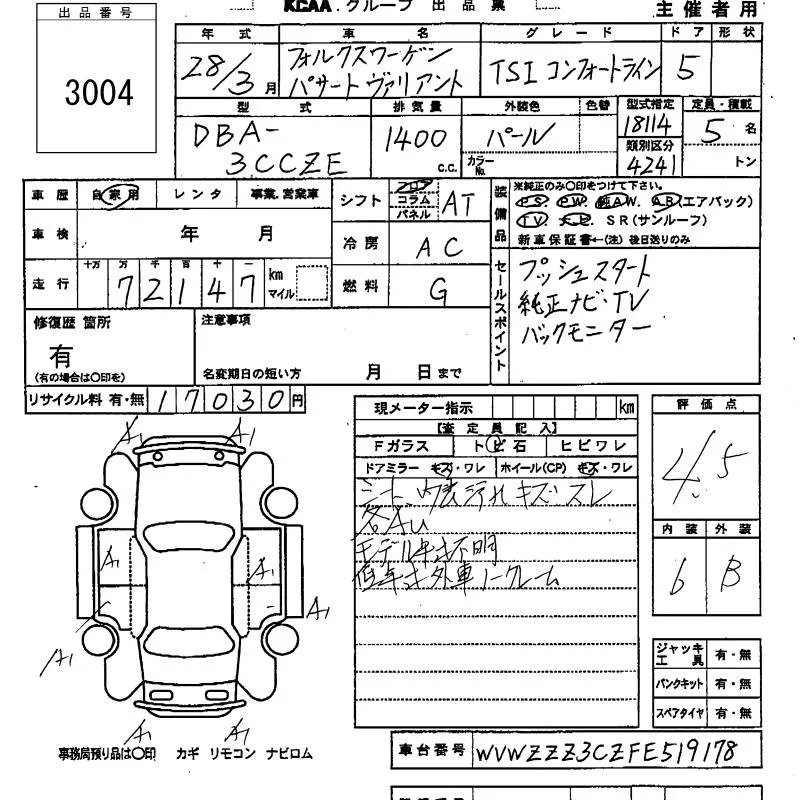 出品番号
3004
KCAA.グループ 出品票
主催者用
年式 車名 グレード ドア 形状
28/3月 フォルクスワーゲン パサートヴァリアント TSIコンフォートライン 5
型式 排気量 外装色 色替 型式指定 定員・積載
DBA-3CCZE 1400 c.c. パール カラーNo. 18114 5名
類別区分 4241 トン
車歴 自家用 レンタ 事業.営業車
車検 年 月
走行 十万 万 千 百 十 一
72147 km マイル
シフト フロア コラム パネル AT
冷房 AC
燃料 G
装備品
※純正のみ〇印をつけて下さい。
PS. PW. 純AW. AB(エアバック)
TV. ナビ. SR(サンルーフ)
新車保証書←(注) 後日送りのみ
セールスポイント
プッシュスタート
純正ナビ・TV
バックモニター
修復歴 箇所
有
(有の場合は〇印を)
注意事項
名変期日の短い方 月 日まで
リサイクル料 有・無 17030円
現メーター指示 km
【査定員記入】
Fガラス トビ石 ヒビワレ
ドアミラー キズ・ワレ ホイール(CP) キズ・ワレ
シート、内装汚れ キズ・スレ
各AU
モデル年式不明
低年式外車ノークレーム
評価点
4.5
内装 外装
6 B
ジャッキ工具 有・無
パンクキット 有・無
スペアタイヤ 有・無
A1 A1
A1 A1
A1
A1
A1 A1
事務局預り品は〇印 カギ リモコン ナビロム
車台番号 WVWZZZ3CZFE519178